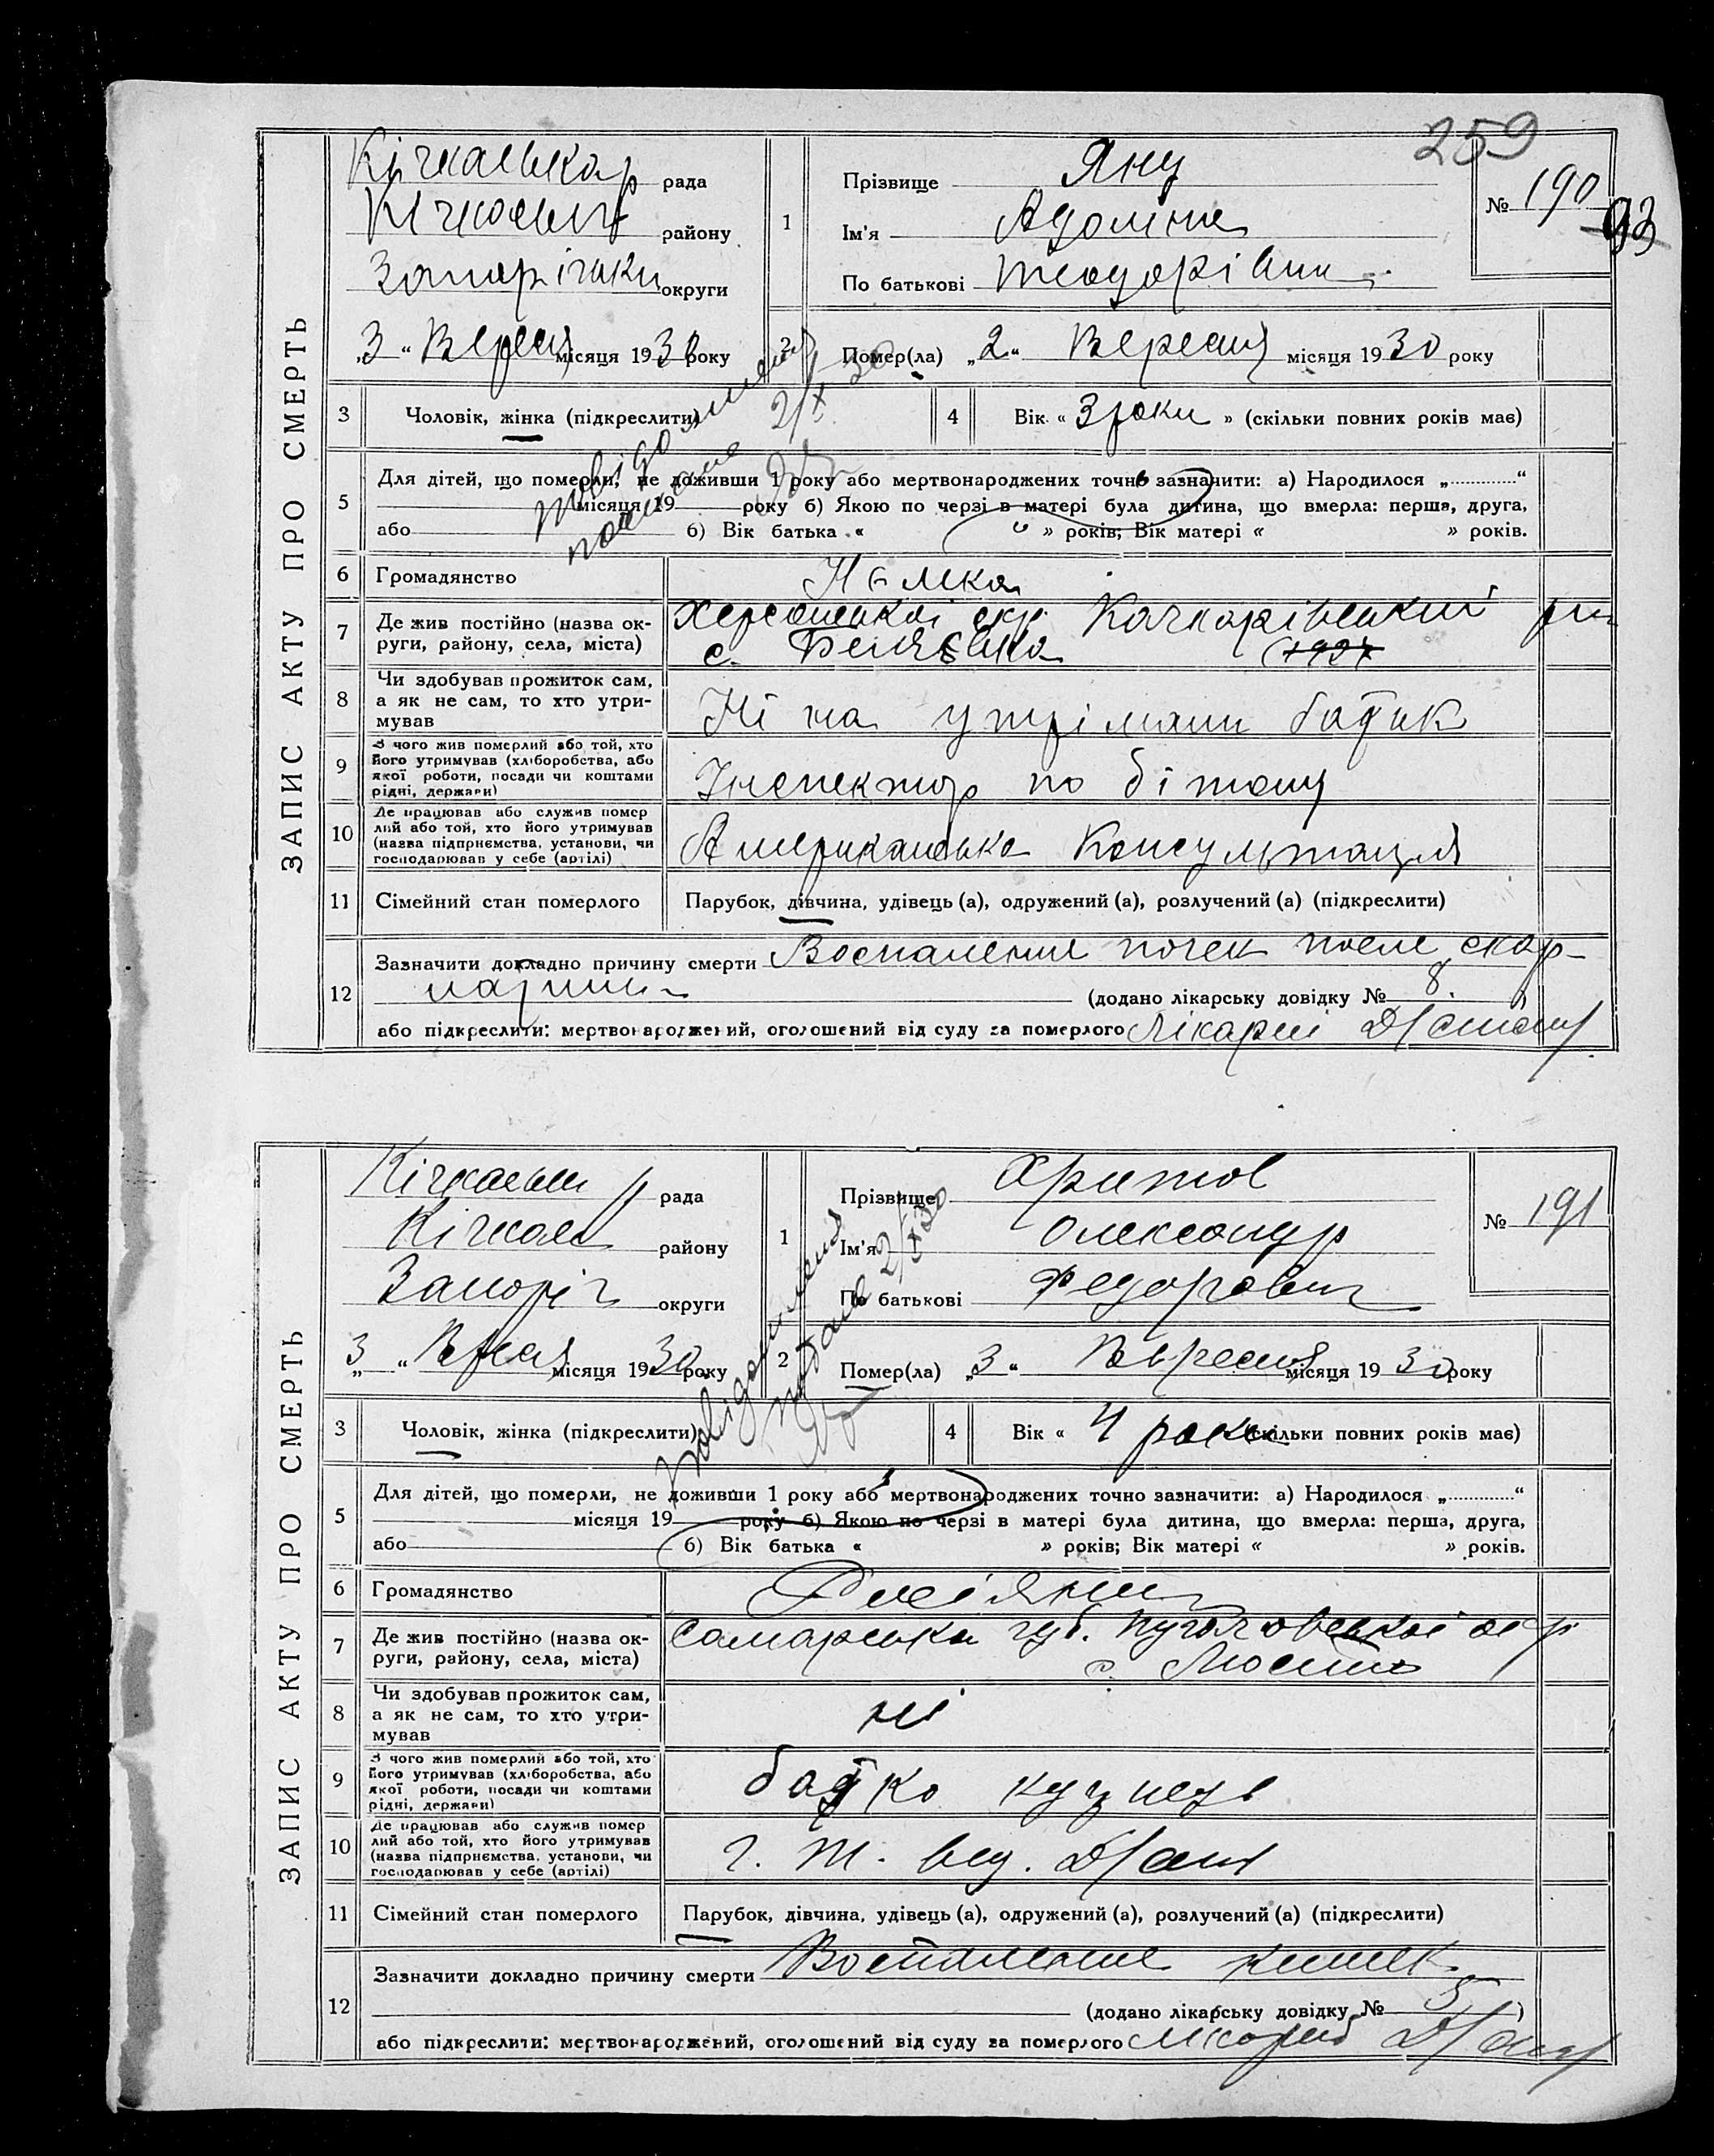 259
ЗАПИС АКТУ ПРО СМЕРТЬ
рада
району
Запоріжки округи
"3" Вересня місяця 1930 року
1
Прізвище Яну
Ім'я Адоліна
По батькові Теодорівна
№ 190
93
2
Помер(ла) "2" Вересня місяця 1930 року
3 Чоловік, жінка (підкреслити)
4 Вік « 3 роки » (скільки повних років має)
5
Для дітей, що померли, не доживши 1 року або мертвонароджених точно зазначити: а) Народилося „ “
місяця 19 року б) Якою по черзі в матері була дитина, що вмерла: перша, друга,
або б) Вік батька « » років; Вік матері « » років.
6 Громадянство Німка
7 Де жив постійно (назва ок-
руги, району, села, міста)
Херсонської окр. Качкарівський
с.
8 Чи здобував прожиток сам,
а як не сам, то хто утри-
мував
Ні на утрімани батьк
9 З чого жив померлий або той, хто
його утримував (хліборобства, або
якої роботи, посади чи коштами
рідні, держави)
Інспектор по бітону
10 Де працював або служив помер
лий або той, хто його утримував
(назва підприємства, установи, чи
господарював у себе (артілі)
Американська Консультація
11 Сімейний стан померлого Парубок, дівчина, удівець (а), одружений (а), розлучений (а) (підкреслити)
12
Зазначити докладно причину смерти Воспаления почек после скар-
латини
(додано лікарську довідку № 8. )
або підкреслити: мертвонароджений, оголошений від суду за померлого Лікарні
повідомлення
послане
2/X 30
ЗАПИС АКТУ ПРО СМЕРТЬ
рада
Кічкас району
Запоріз округи
"3" місяця 1930 року
1
Прізвище Хритов
Ім'я Олександр
По батькові Федорович
№ 191
2
Помер(ла) "3" Вересня місяця 1930 року
3 Чоловік, жінка (підкреслити)
4 Вік « 4 роки (скільки повних років має)
5
Для дітей, що померли, не доживши 1 року або мертвонароджених точно зазначити: а) Народилося „ “
місяця 19 року б) Якою по черзі в матері була дитина, що вмерла: перша, друга,
або б) Вік батька « » років; Вік матері « » років.
6 Громадянство Росіянин
7 Де жив постійно (назва ок-
руги, району, села, міста)
Самарська губ. Пугачовської окр
с.
8 Чи здобував прожиток сам,
а як не сам, то хто утри-
мував
ні
9 З чого жив померлий або той, хто
його утримував (хліборобства, або
якої роботи, посади чи коштами
рідні, держави)
батько кузнець
10 Де працював або служив помер
лий або той, хто його утримував
(назва підприємства, установи, чи
господарював у себе (артілі)
11 Сімейний стан померлого Парубок, дівчина, удівець (а), одружений (а), розлучений (а) (підкреслити)
12
Зазначити докладно причину смерти Воспаление кишек
(додано лікарську довідку № 5 )
або підкреслити: мертвонароджений, оголошений від суду за померлого
повідомлення
подано 2/X 30